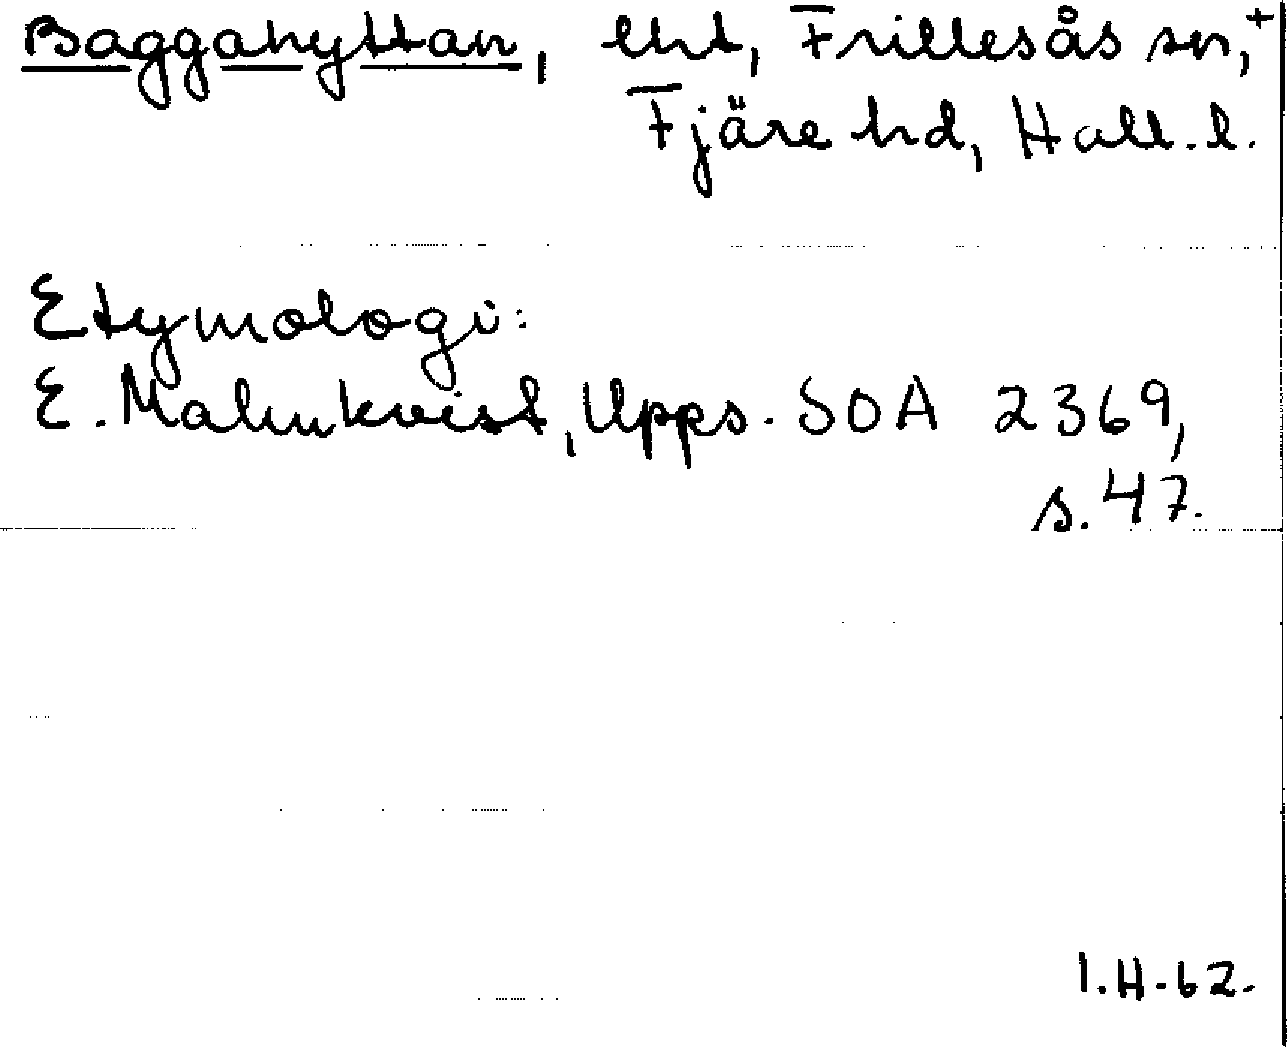 Baggahyttan, lht, Frillesås sn,+
Fjäre hd, Hall. l.
Etymologi:
E. Malmkvist, Upps. SOA 2369,
s. 47.
I.H-62.